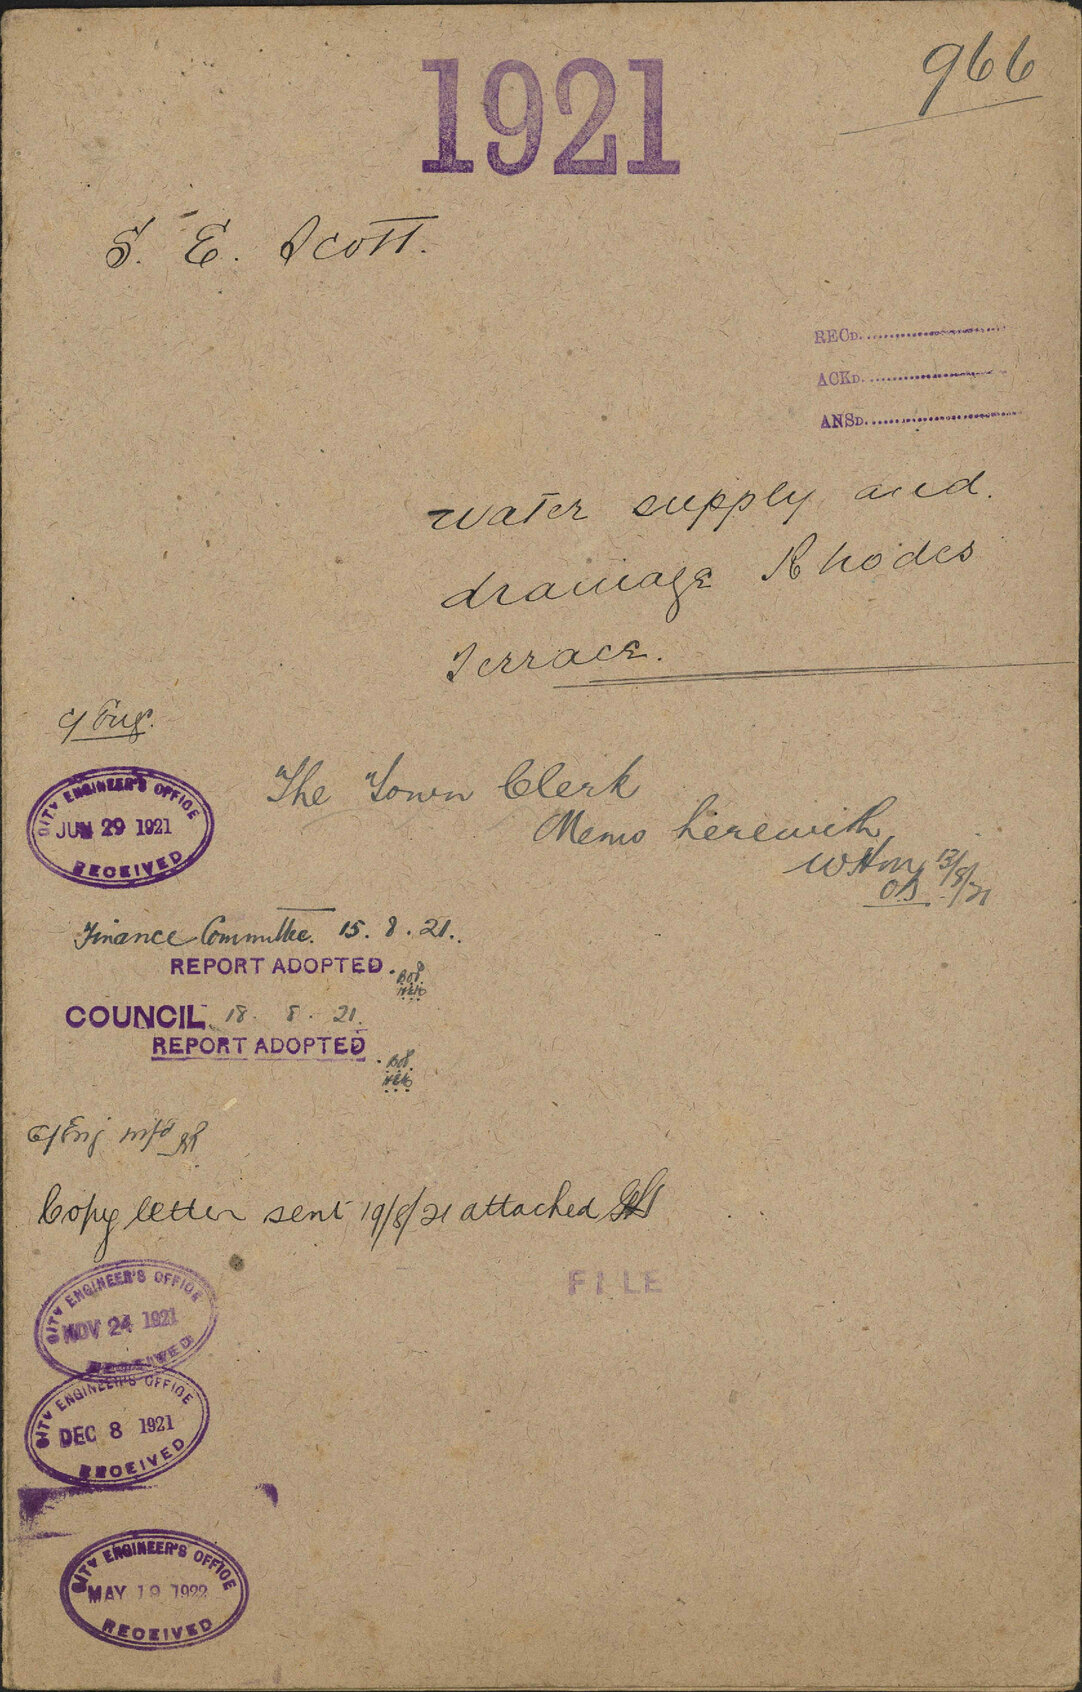 1921
966
S. E. Scott.
RECD.
ACKD.
ANSD.
Water supply and
drainage Rhodes
Terrace.
C/Eng.
CITY ENGINEER'S OFFICE
JUN 29 1921
RECEIVED
The Town Clerk
Memo herewith
13/8/21
Finance Committee. 15. 8. 21.
REPORT ADOPTED
COUNCIL 18. 8. 21.
REPORT ADOPTED
C/Eng
Copy letter sent 19/8/21 attached
CITY ENGINEER'S OFFICE
NOV 24 1921
RECEIVED
FILE
CITY ENGINEER'S OFFICE
DEC 8 1921
RECEIVED
CITY ENGINEER'S OFFICE
MAY 19 1922
RECEIVED